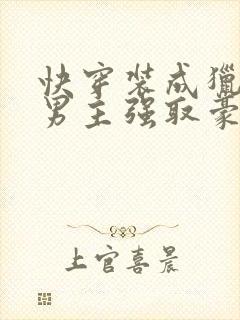 快穿装成猎
男主强取豪
上官喜晨